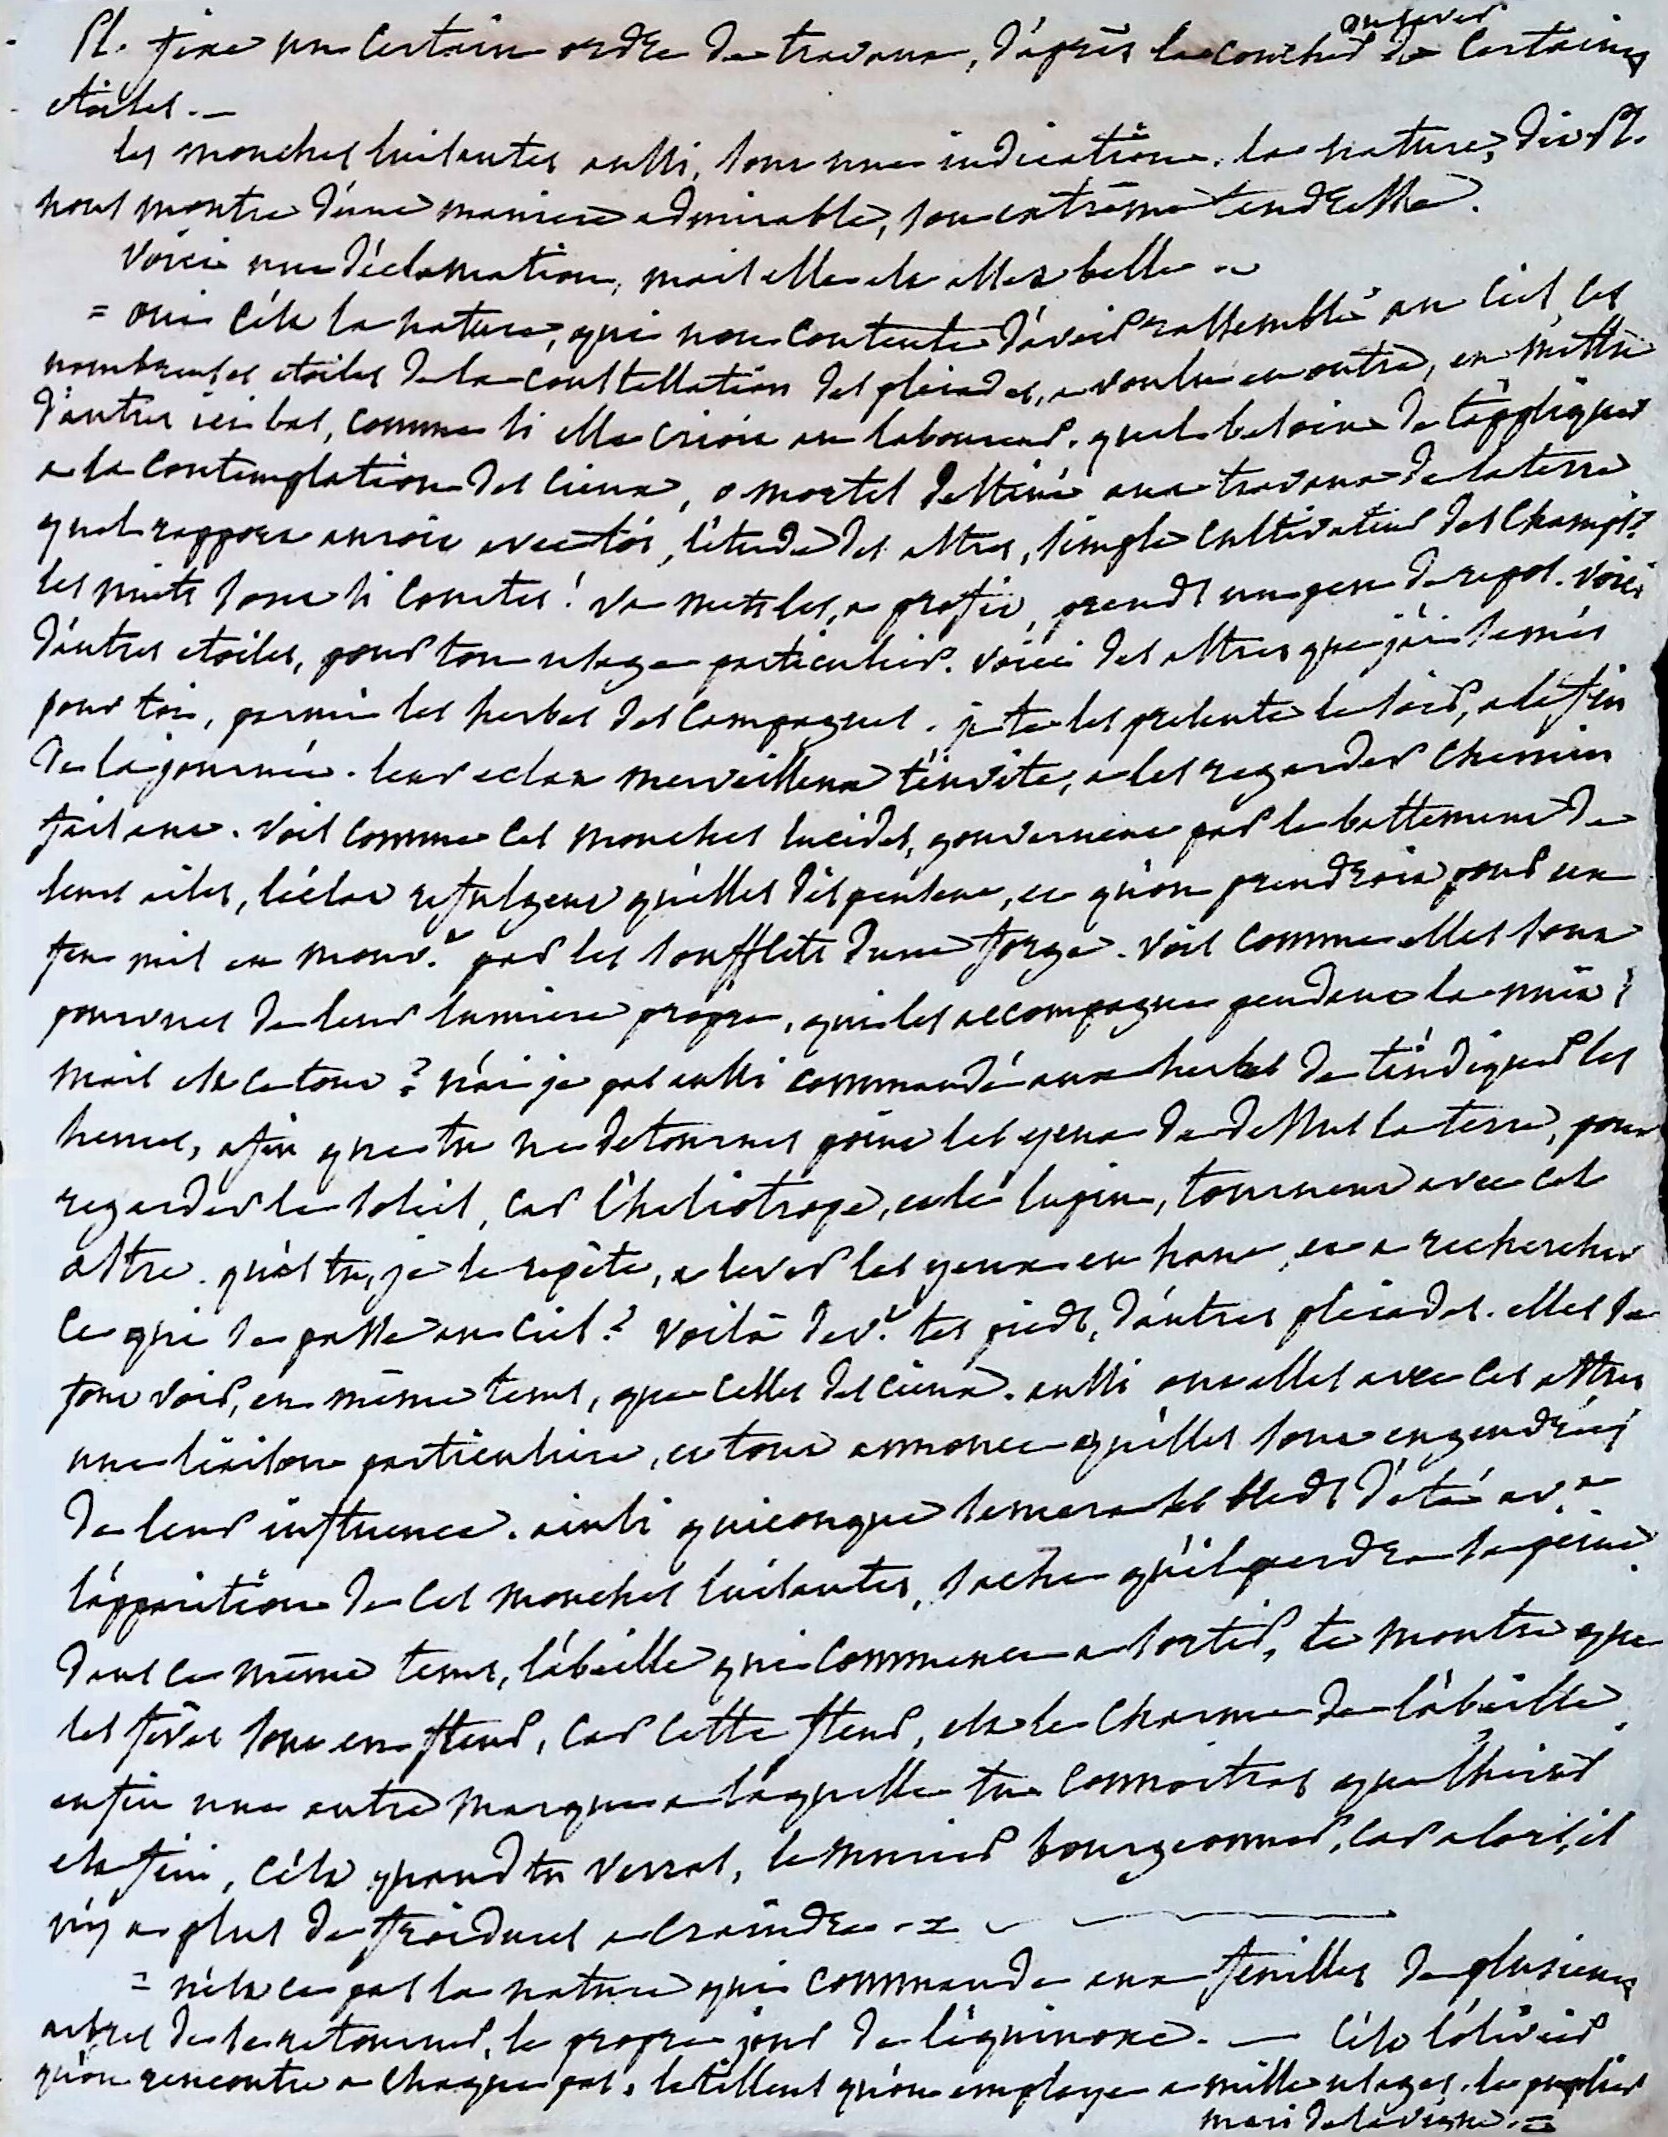 ou lever
Pl. fixe un certain ordre de travaux, d'après le coucher de certaines
etoiles. —
les mouches luisantes aussi, sont une indication. la nature, dit Pl.
nous montre d'une maniere admirable, son extrême tendresse.
Voici une déclamation, mais elle est assez belle —
= oui c'est la nature, qui non contente d'avoir rassemblé au ciel, les
nombreuses etoiles de la constellation des pleiades, a voulu en outre, en mettre
d'autres ici bas, comme si elle crioit au laboureur. quel besoin de t'appliquer
a la contemplation des cieux, o mortel destiné aux travaux de la terre
quel rapport auroit avec toi, l'etude des astres, simple cultivateur des champs?
les nuits sont si courtes! va mets les, a profit, prends un peu de repos. voici
d'autres etoiles, pour ton usage particulier. voici des astres que j'ai semés
pour toi, parmi les herbes des campagnes. je te les presente le soir, a la fin
de la journée. leur eclat merveilleux t'invite, a les regarder chemin
faisant. vois comme ces mouches lucides, gouvernent par le battement de
leurs ailes, l'éclat refulgent qu'elles dispensent, et qu'on prendroit pour un
feu mis en mouv.t par les soufflets d'une forge. vois comme elles sont
pourvues de leur lumiere propre, qui les accompagne pendant la nuit!
mais est ce tout? n'ai je pas aussi commandé aux herbes de t'indiquer les
heures, afin que tu ne detournes point les yeux de dessus la terre, pour
regarder le soleil, car l'heliotrope, et le lupin, tournent avec cet
astre. qu'as tu, je le repète, a lever les yeux en haut, et a rechercher
ce qui se passe au ciel? voilà dev.t tes pieds, d'autres pleiades. elles se
font voir, en même tems, que celles des cieux. aussi ont elles avec ces astres
une liaison particuliere, et tout annonce qu'elles sont engendrées
de leur influence. ainsi quiconque semera les bleds d'été av.t
l'apparition de ces mouches luisantes, sache qu'il perdra sa peine.
dans ce même tems, l'abeille qui commence a sortir, te montre que
les fèves sont en fleur, car cette fleur, est le charme de l'abeille.
enfin une autre marque a laquelle tu connoitras que l'hiver
est fini, c'est quand tu verras, le murier bourgeonner, car alors, il
n'y a plus de froidures a craindre. =
= n'est ce pas la nature qui commande aux feuilles de plusieurs
arbres de se retourner, le propre jour de l'équinoxe. — c'est l'olivier
qu'on rencontre a chaque pas, le tilleul qu'on employe a mille usages. le peuplier
mari de la vigne. =